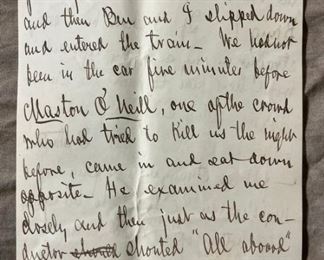 and then Ben and I slipped down
and entered the train – We had not
been in the car five minutes before
Maston O'Neill, one of the crowd
who had tried to kill us the night
before, came in and sat down
opposite – He examined me
closely and then just as the con-
ductor shouted "All aboard"